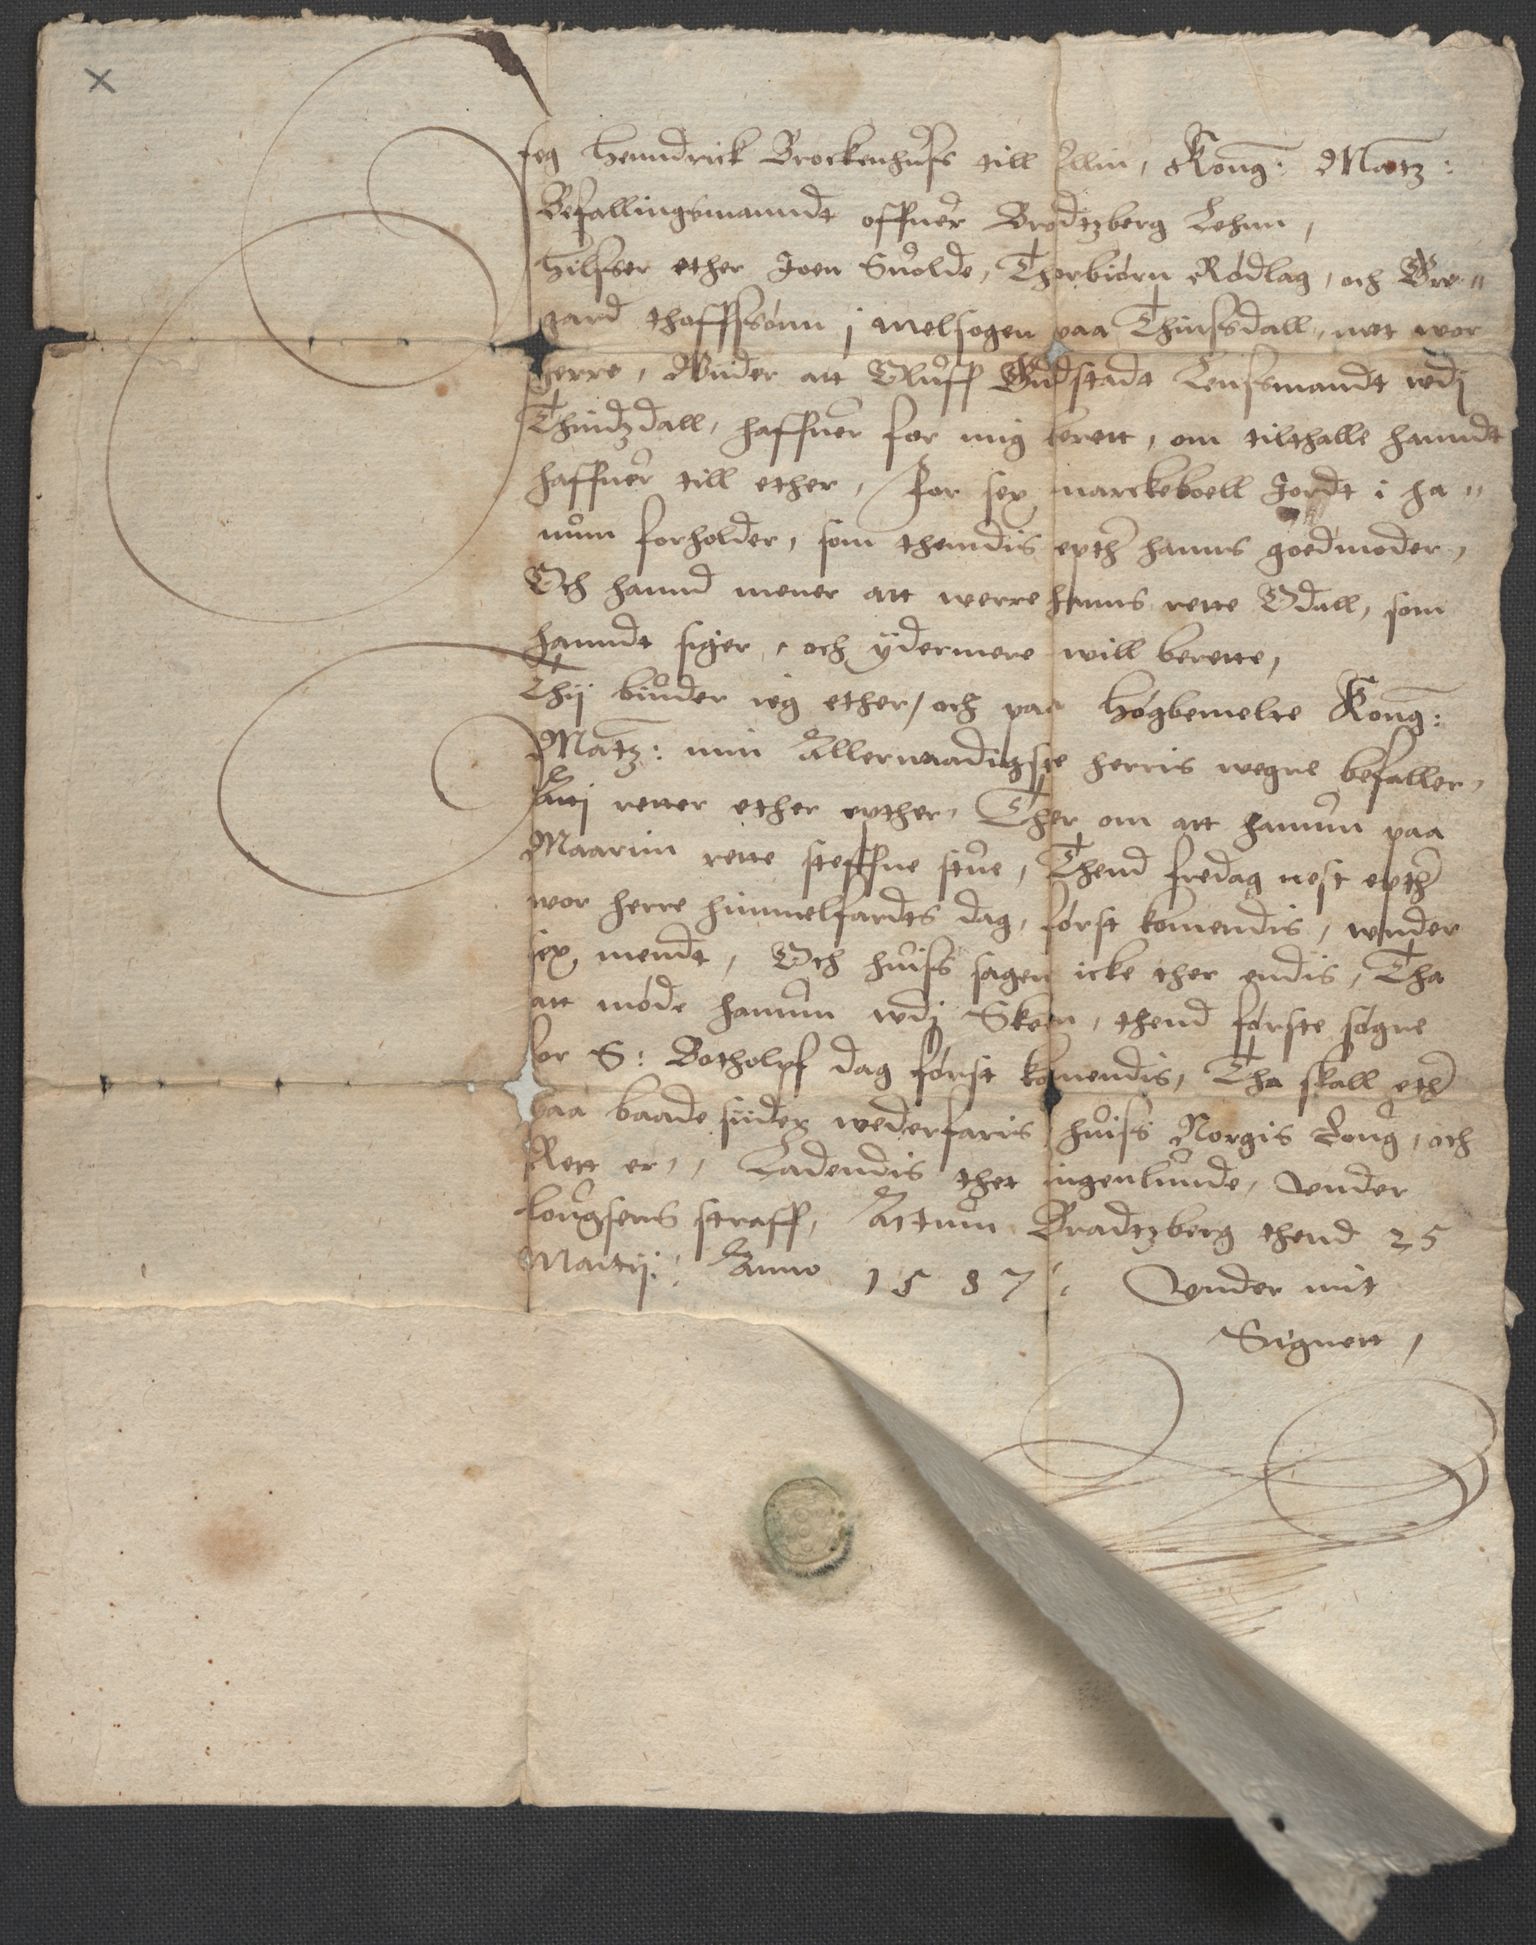 Jeg Henndrick Brockenhuss till Ellin, Kong: Matz:
Befallingsmanndt offuer Bradtzberg Lehnn,
Hilsser ether Joen Suolde, Thorbiørn Rødlag, och Gre„
gard thoffssønn j melsogen paa Thinssdall, met wor
herre, Wider att Oluff Gudstadt Lenssmandt wdj
Thindzdall, haffuer for mig berett, om tilthalle hanndt
haffuer till ether, for sex marckeboell Jordt i ha„
num forholder, som themdis epther hanns goedmoder,
Och hannd mener att werre hanns rette Odall, som
hanndt siger, och ydermere will berette,
Thij biuder ieg ether, och paa Høgbemelte Kong:
Matz: min Allernaadigste herris wegne befaller,
Attj retter ether epther, Ther om att hannum paa
Maarim rette steffne stue, Thend fredag nest epther
wor herre himmelfardts dag, først komendis, wnder
sex mendt, Och huiss sagen icke ther endis, Tha
att møde hannum wdj Skeen, thend første søgne
for S: Botholpf dag først komendis, Tha skall ether
paa baade sider wederfaris huiss Norgis Loug, och
Rett er, Ladendis thet ingenlunde, Vnder
lougsens straff, Actum Bradtzberg thend 25
Martij: Anno 1587. Vnder mit
Signett,